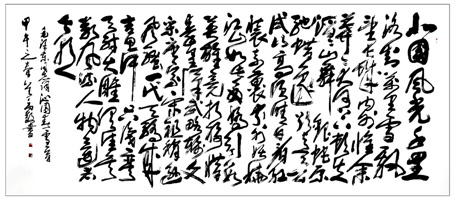 北国风光千里
冰封万里雪飘
望长城内外惟余
莽莽大河上下顿失
滔滔山舞银蛇原
驰蜡象欲与天公
试比高须晴日看红
装素裹分外妖娆
江山如此多娇引无数
英雄竞折腰惜
秦皇汉武略输文
采唐宗宋祖稍逊
风骚一代天骄成
吉思汗只识弯
弓射大雕俱往矣
数风流人物还看
今朝
毛泽东词沁园春雪一首
甲午之春